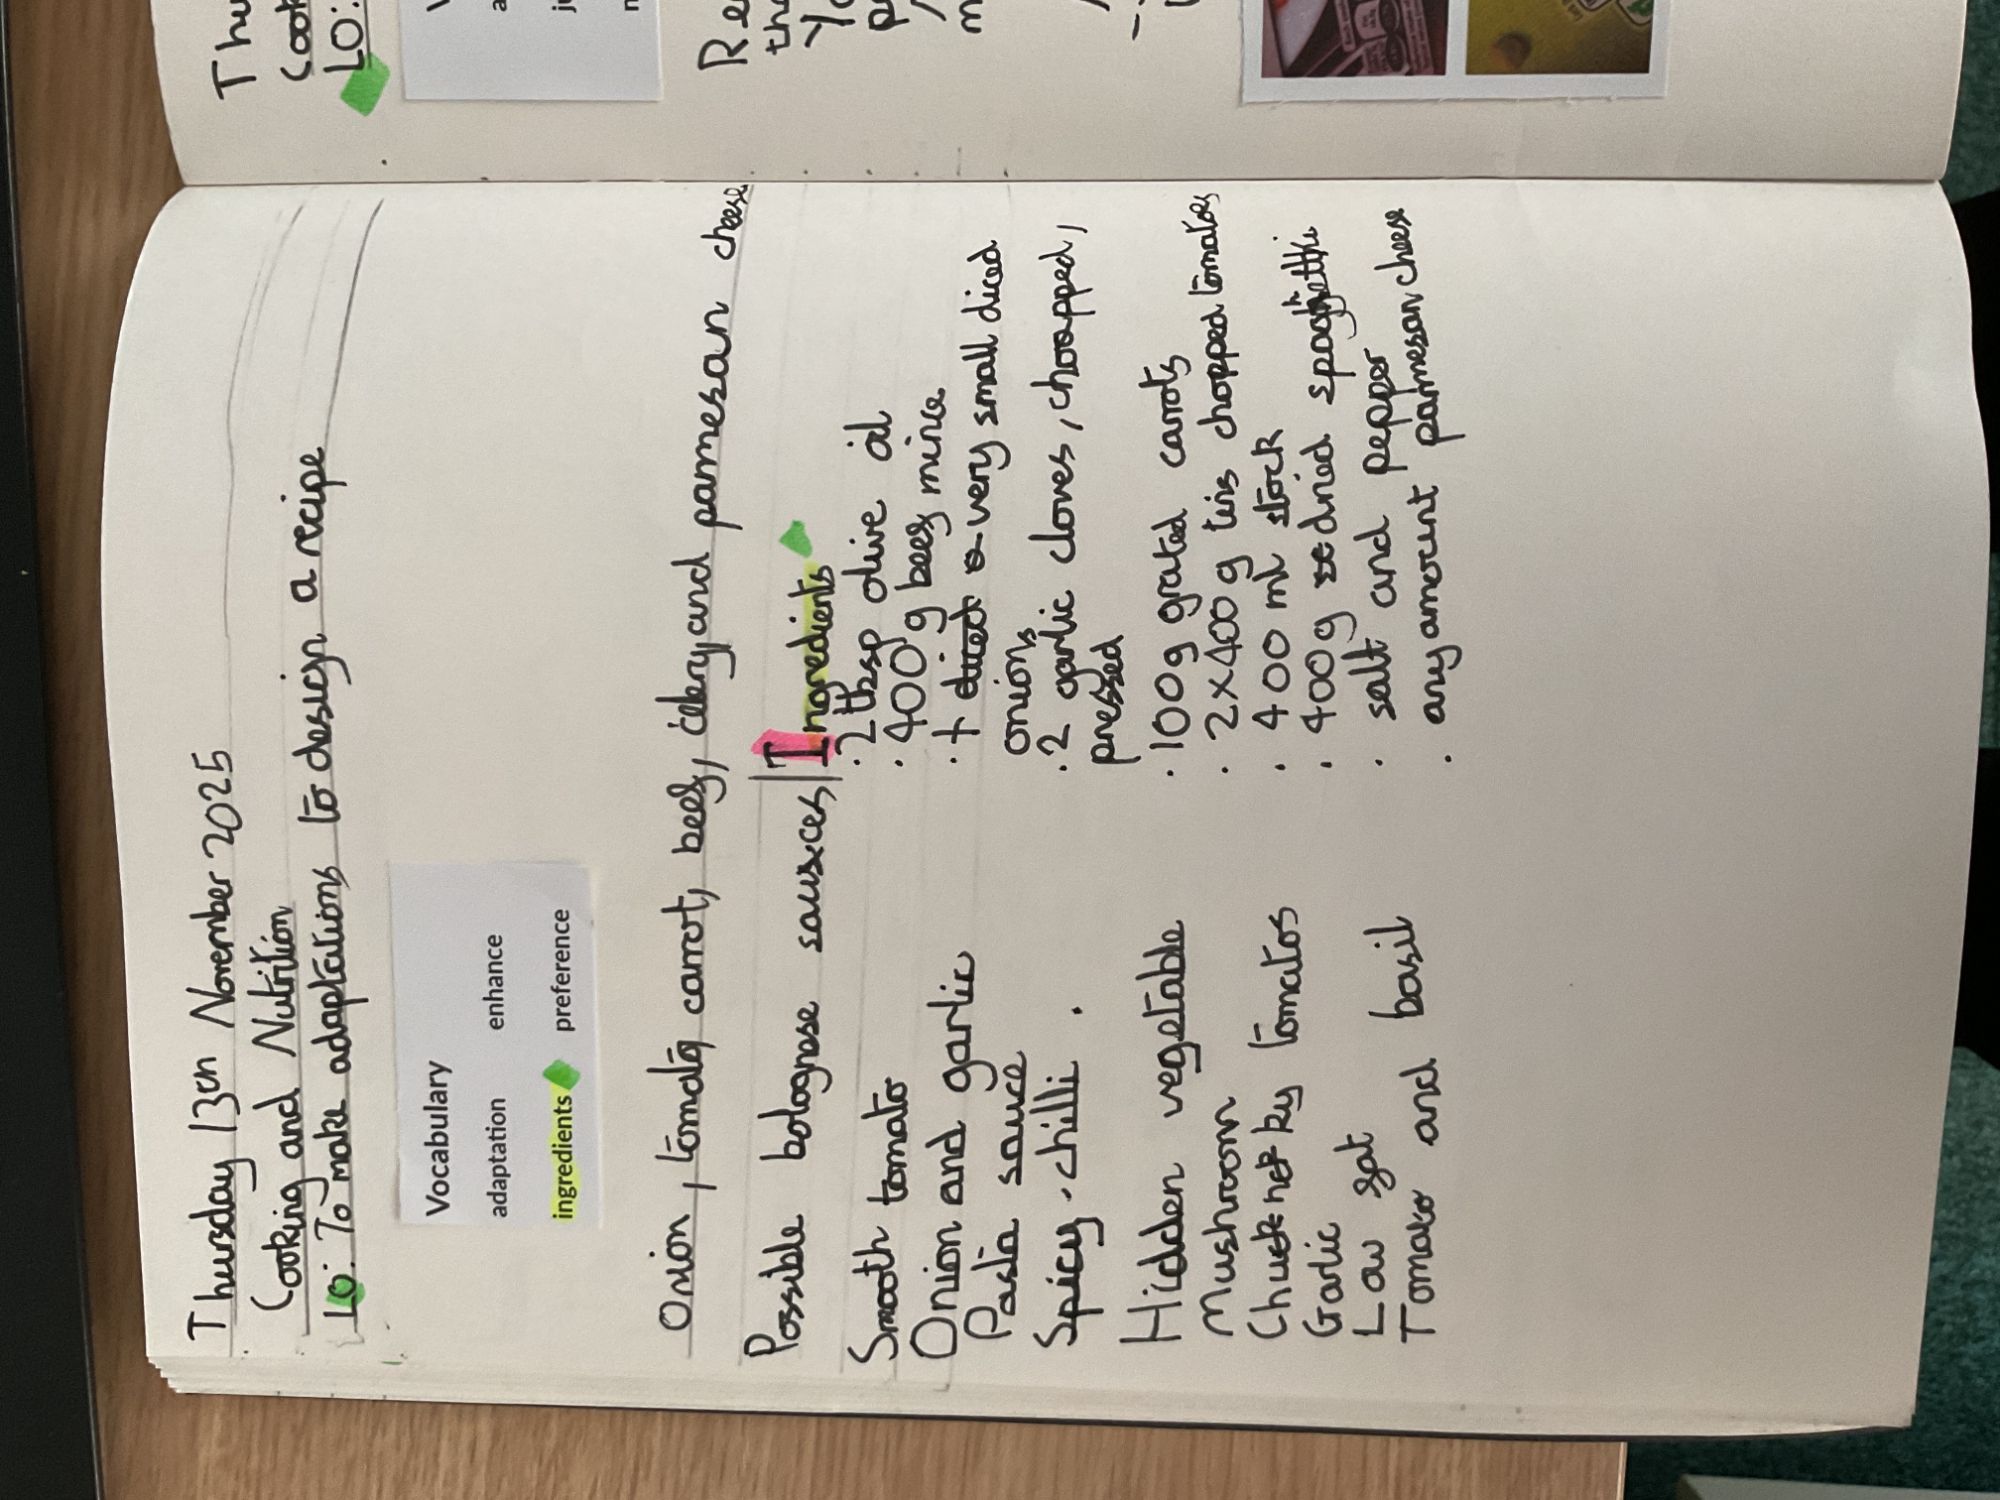 Thursday 13th November 2025
Cooking and Nutrition
LO: To make adaptations to design a recipe
Vocabulary
adaptation enhance
ingredients preference
Onion, tomato, carrot, beef, celery, and parmesan cheese
Possible bolognese sauces
Smooth tomato
Onion and garlic
Pasta sauce
Spicy chilli
Hidden vegetable
Mushroom
Chunky tomatos
Garlic
Low fat
Tomato and basil
Ingredients
· 2 tbsp olive oil
· 400g beef mince
· very small diced
onions
· 2 garlic cloves, choopped,
pressed
· 100g grated carrots
· 2x400g tins chopped tomatoes
· 400 ml stock
· 400g dried spaghetthi
· salt and pepper
· any amount parmesan cheese
Thu
Cook
LO: